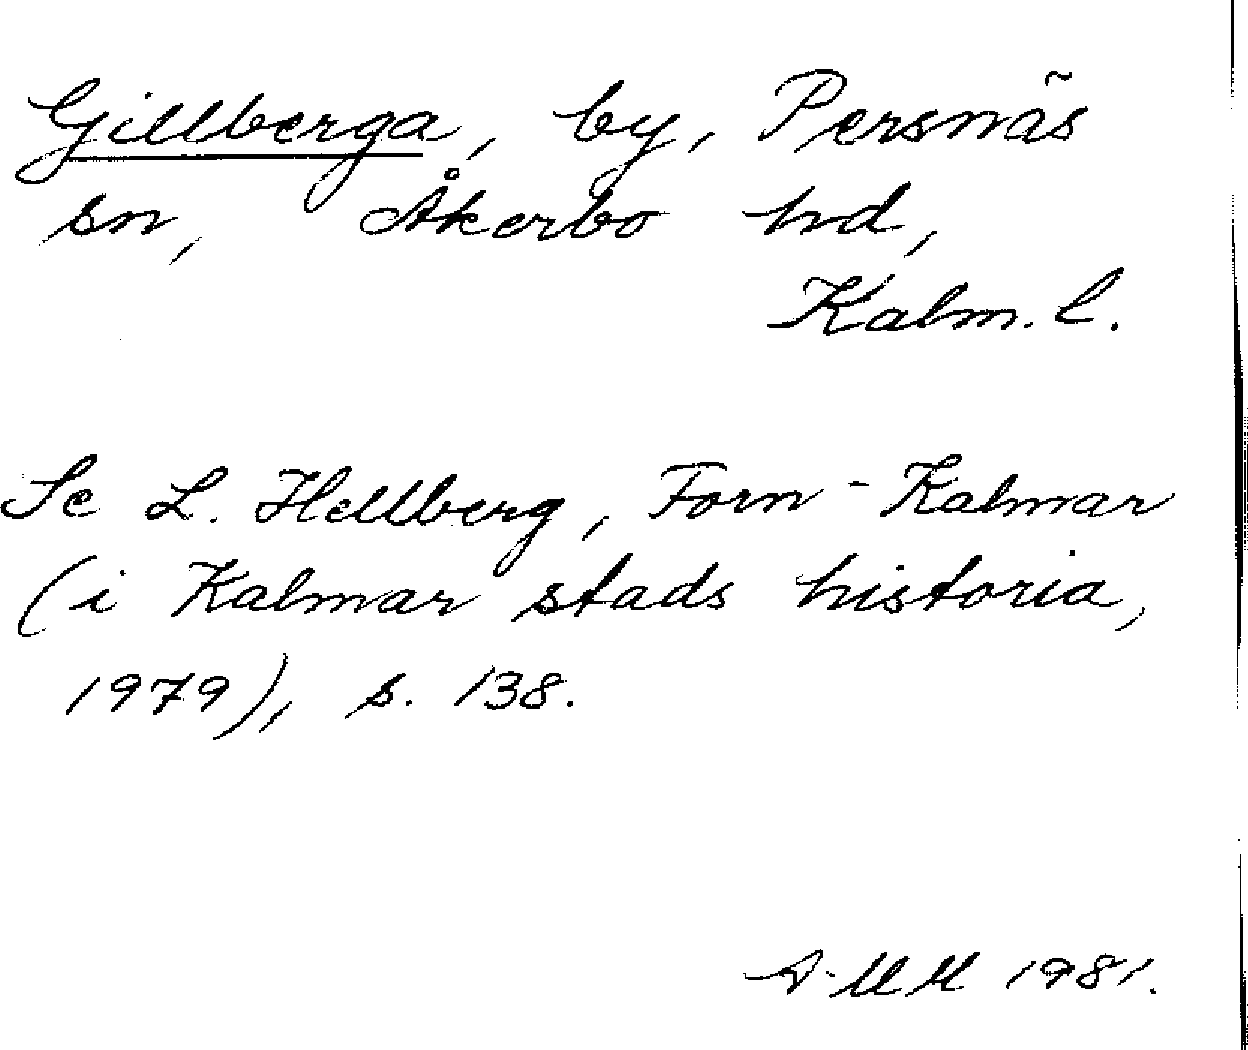 Gillberga, by, Persnäs
sn, Åkerbo hd,
Kalm. l.
Se L. Hellberg, Forn-Kalmar
(i Kalmar stads historia,
1979), s. 138.
A-MM 1981.